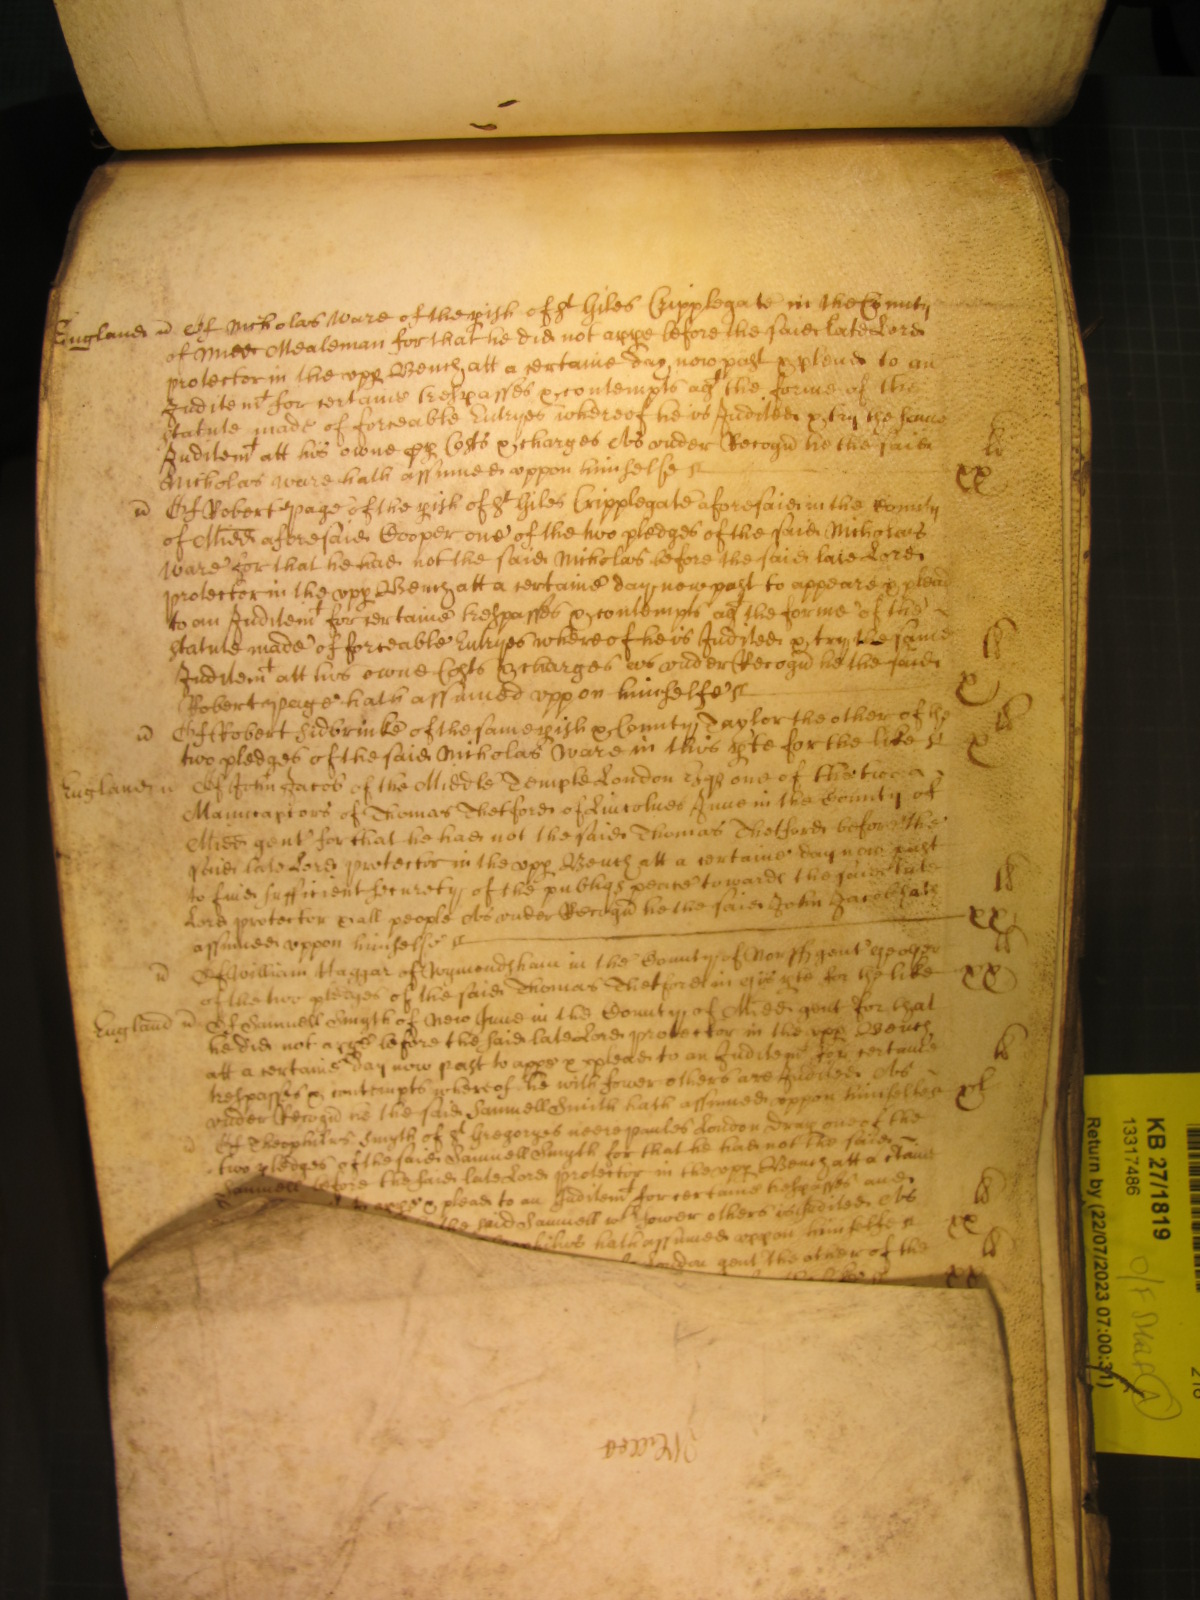 England Of Nicholas Ware of the pish of St Giles Cripplegate in the County
of Midd Mealeman for that he did not appe before the said late Lord
protector in the upp Bench att a certaine day now past & plead to an
Inditemt for certaine trespasses & contempts agt the forme of the
statute made of forceable Entryes whereof he is Indited & try the same
Inditemt att his owne Costs & charges As under Recogn he the said
Nicholas Ware hath assumed uppon himselfe xx li
Of Robert Page of the pish of St Giles Cripplegate aforesaid in the County
of Midd aforesaid Cooper one of the two pledges of the said Nicholas
Ware for that he had not the said Nicholas before the said late Lord
protector in the upp Bench att a certaine day now past to appeare & plead
to an Inditemt for certaine trespasses & contempts agt the forme of the
statute made of forceable Entryes whereof he is Indited & try the same
Inditemt att his owne Costs & charges as under Recogn he the said
Robert Page hath assumed uppon himselfe x li
Of Robert Sidbrinke of the same pish & County Taylor the other of the
two pledges of the said Nicholas Ware in this pte for the like x li
England Of John Jacob of the Middle Temple London Esqr one of the two
Manucaptors of Thomas Thetford of Lincolnes Inne in the County of
Midd gent for that he had not the said Thomas Thetford before the
said late Lord protector in the upp Bench att a certaine day now past
to find sufficient securety of the publiq peace towards the said late
Lord protector & all people As under Recogn he the said John Jacob hath
assumed uppon himselfe xx li
Of William Haggar of Wymondsham in the County of Norff gent
of the two pledges of the said Thomas Thetford in this pte for the like xx li
England Of Samuell Smyth of New Inne in the County of Midd gent for that
he did not appe before the said late Lord protector in the upp Bench
att a certaine day now past to appe & plead to an Inditemt for certaine
trespasses & contempts whereof he with fower others are Indited As
under Recogn he the said Samuell Smith hath assumed uppon himselfe xl li
Of Theophilus Smyth of St Gregoryes neere paules London one of the
two pledges of the said Samuell Smyth for that he had not the said
Samuell before the said late Lord protector in the upp Bench att a
to appe & plead to an Inditemt for certaine trespasses and
the said Samuell wth fower others is Indited As
hath assumed uppon himselfe xx li
London gent the other of the
xx li
KB 27/1819
13317486
Return by (22/07/2023 07:00:31)